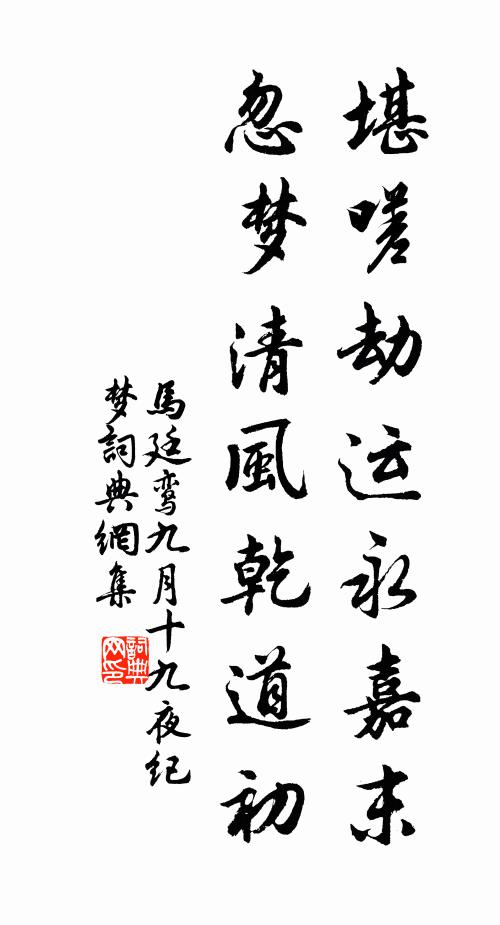 堪嗟劫运永嘉末
忽梦清風乾道初
馬廷鸾九月十九夜纪
梦詞典網集
詞典网印